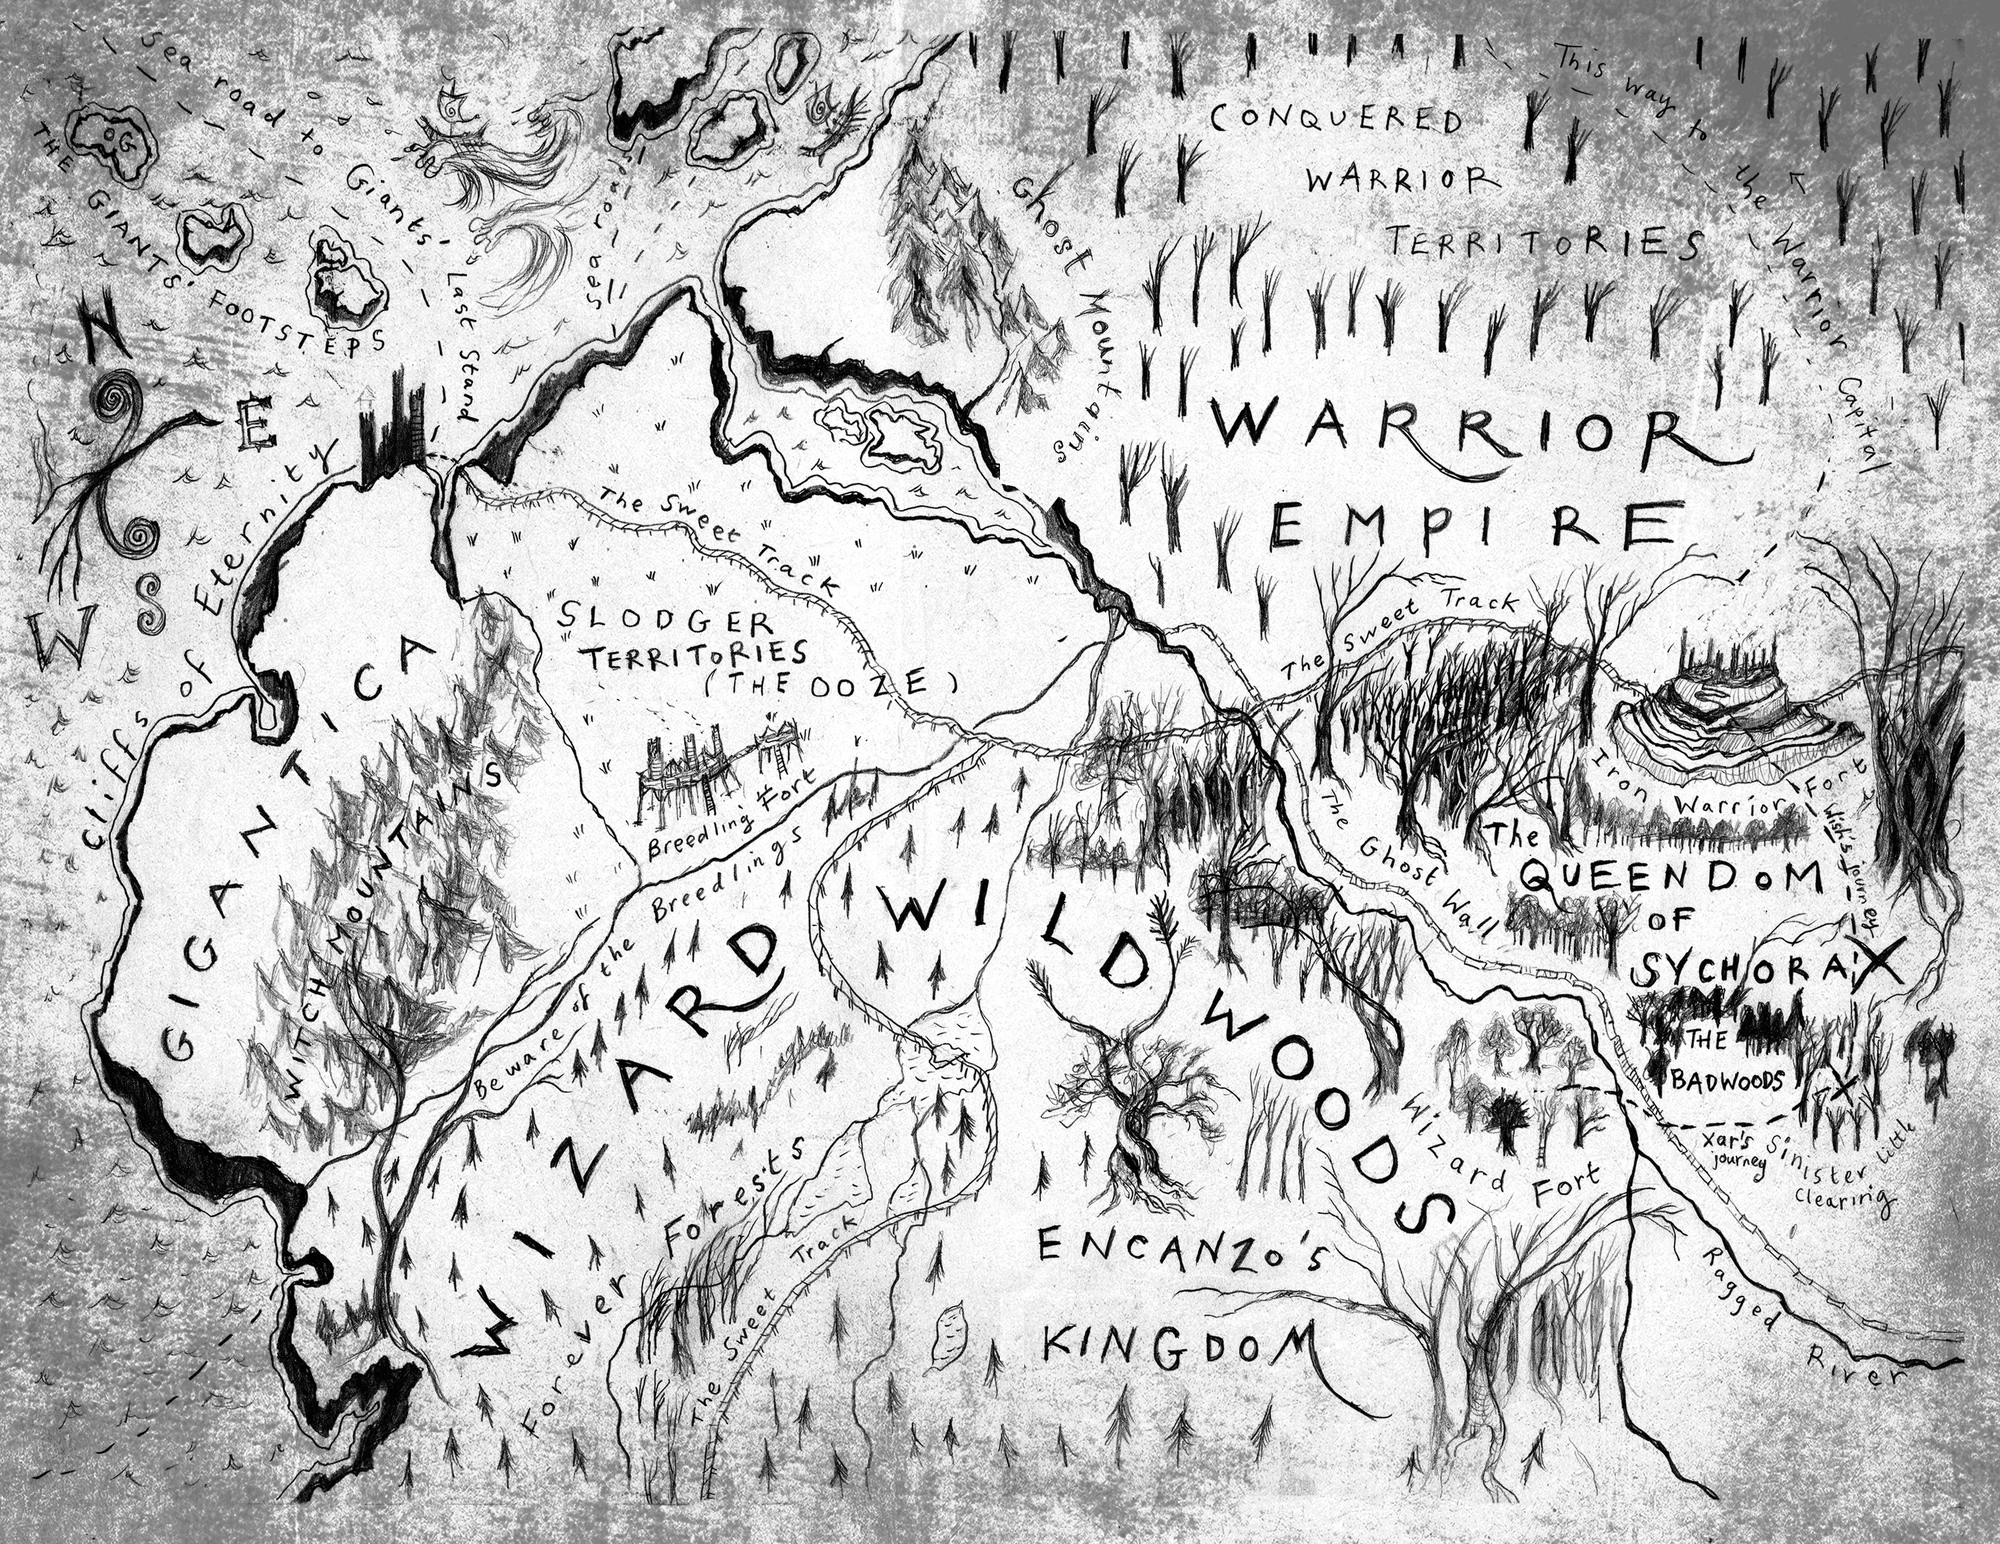 Sea road to Giants' Last Stand
OG
THE GIANTS' FOOTSTEPS
sea road
N
E
S
W
Cliffs of Eternity
Ghost Mountains
CONQUERED
WARRIOR
TERRITORIES
This way to the Warrior Capital
WARRIOR
EMPIRE
The Sweet Track
The Sweet Track
SLODGER
TERRITORIES
(THE OOZE)
GIGANTICA
WITCH MOUNTAINS
Breedling Fort
Beware of the Breedlings
Iron Warrior Fort
Wish's journey
The Ghost Wall
The
QUEENDOM
OF
SYCHORAX
X
THE
BADWOODS
X
Xar's
journey
Sinister little
Clearing
WIZARD WILDWOODS
Wizard Fort
Forever Forests
The Sweet Track
ENCANZO'S
KINGDOM
Ragged
River